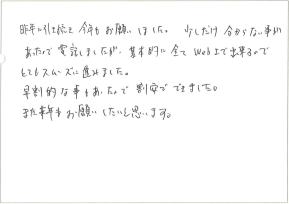 昨年に引き続き今年もお願いしました。 少しだけ分からない事が
あったので電話しましたが、基本的に全てWeb上で出来るので
とてもスムーズに進みました。
早割的な事もあったので割安でできました。
また来年もお願いしたいと思います。